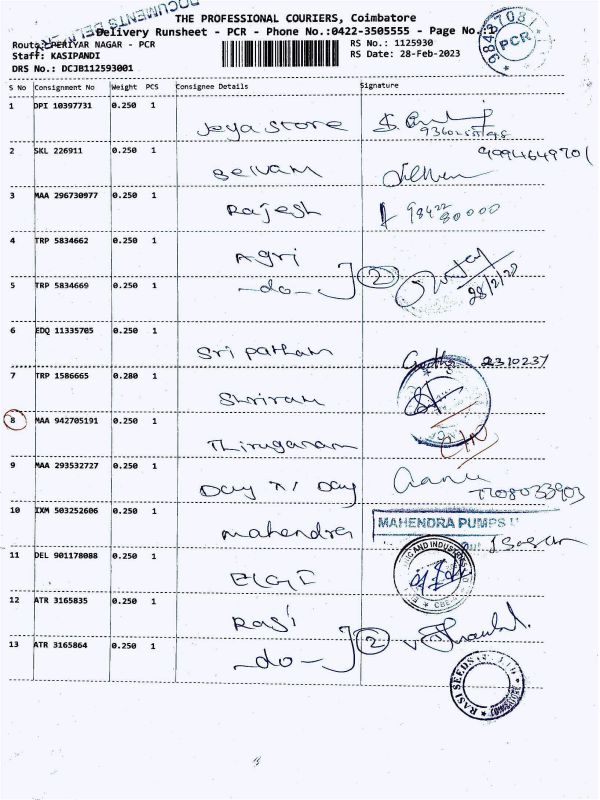 DOCUMENTS DEL
THE PROFESSIONAL COURIERS, Coimbatore
Delivery Runsheet - PCR - Phone No.:0422-3505555 - Page No.:
98487081
PCR
Route: PERIYAR NAGAR - PCR
RS No.: 1125930
Staff: KASIPANDI
RS Date: 28-Feb-2023
DRS No.: DCJB112593001
S No Consignment No Weight PCS Consignee Details Signature
1 DPI 10397731 0.250 1 Jeya Store
2 SKL 226911 0.250 1 Selvam 9994649701
3 MAA 296730977 0.250 1 Rajesh 98422 80000
4 TRP 5834662 0.250 1 Agri
5 TRP 5834669 0.250 1 -do- 2 28/2/23
6 EDQ 11335705 0.250 1 Sri Patham 2310237
7 TRP 1586665 0.280 1 Shriram
8 MAA 942705191 0.250 1 Thiruganam
9 MAA 293532727 0.250 1 Day N Day 7708033903
10 IXM 503252606 0.250 1 Mahendra MAHENDRA PUMPS
11 DEL 901178088 0.250 1 ELGI
12 ATR 3165835 0.250 1 Rasi
13 ATR 3165864 0.250 1 -do- 2
RASI SEEDS